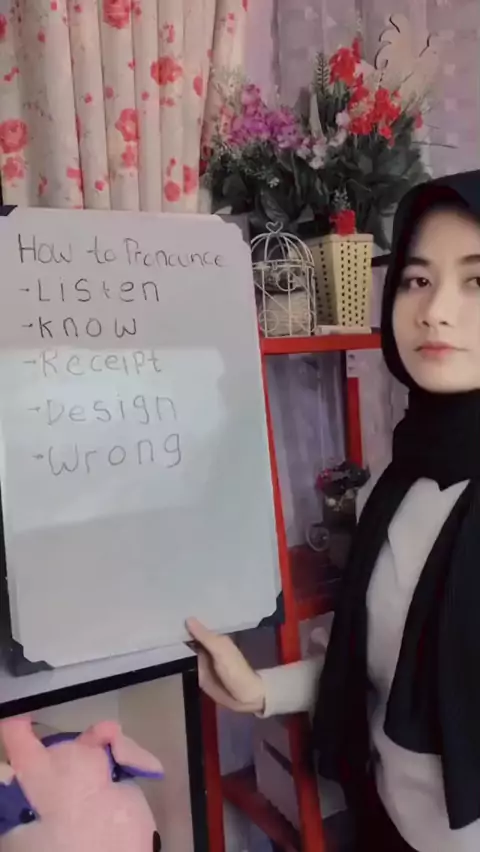 How to Pronounce
-Listen
-Know
-Receipt
-Design
-Wrong